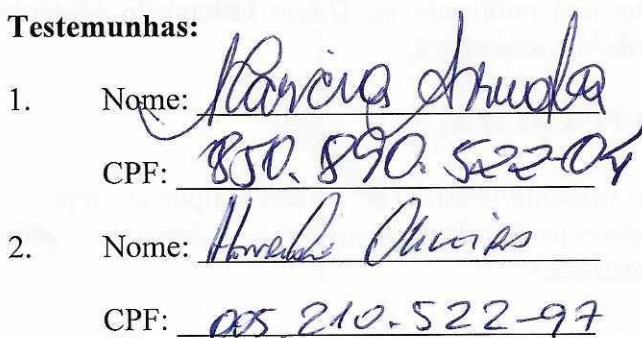 Testemunhas:
1. Nome: Arruda
CPF: 850.890.522-04
2. Nome: Oliveira
CPF: 005.210.522-97